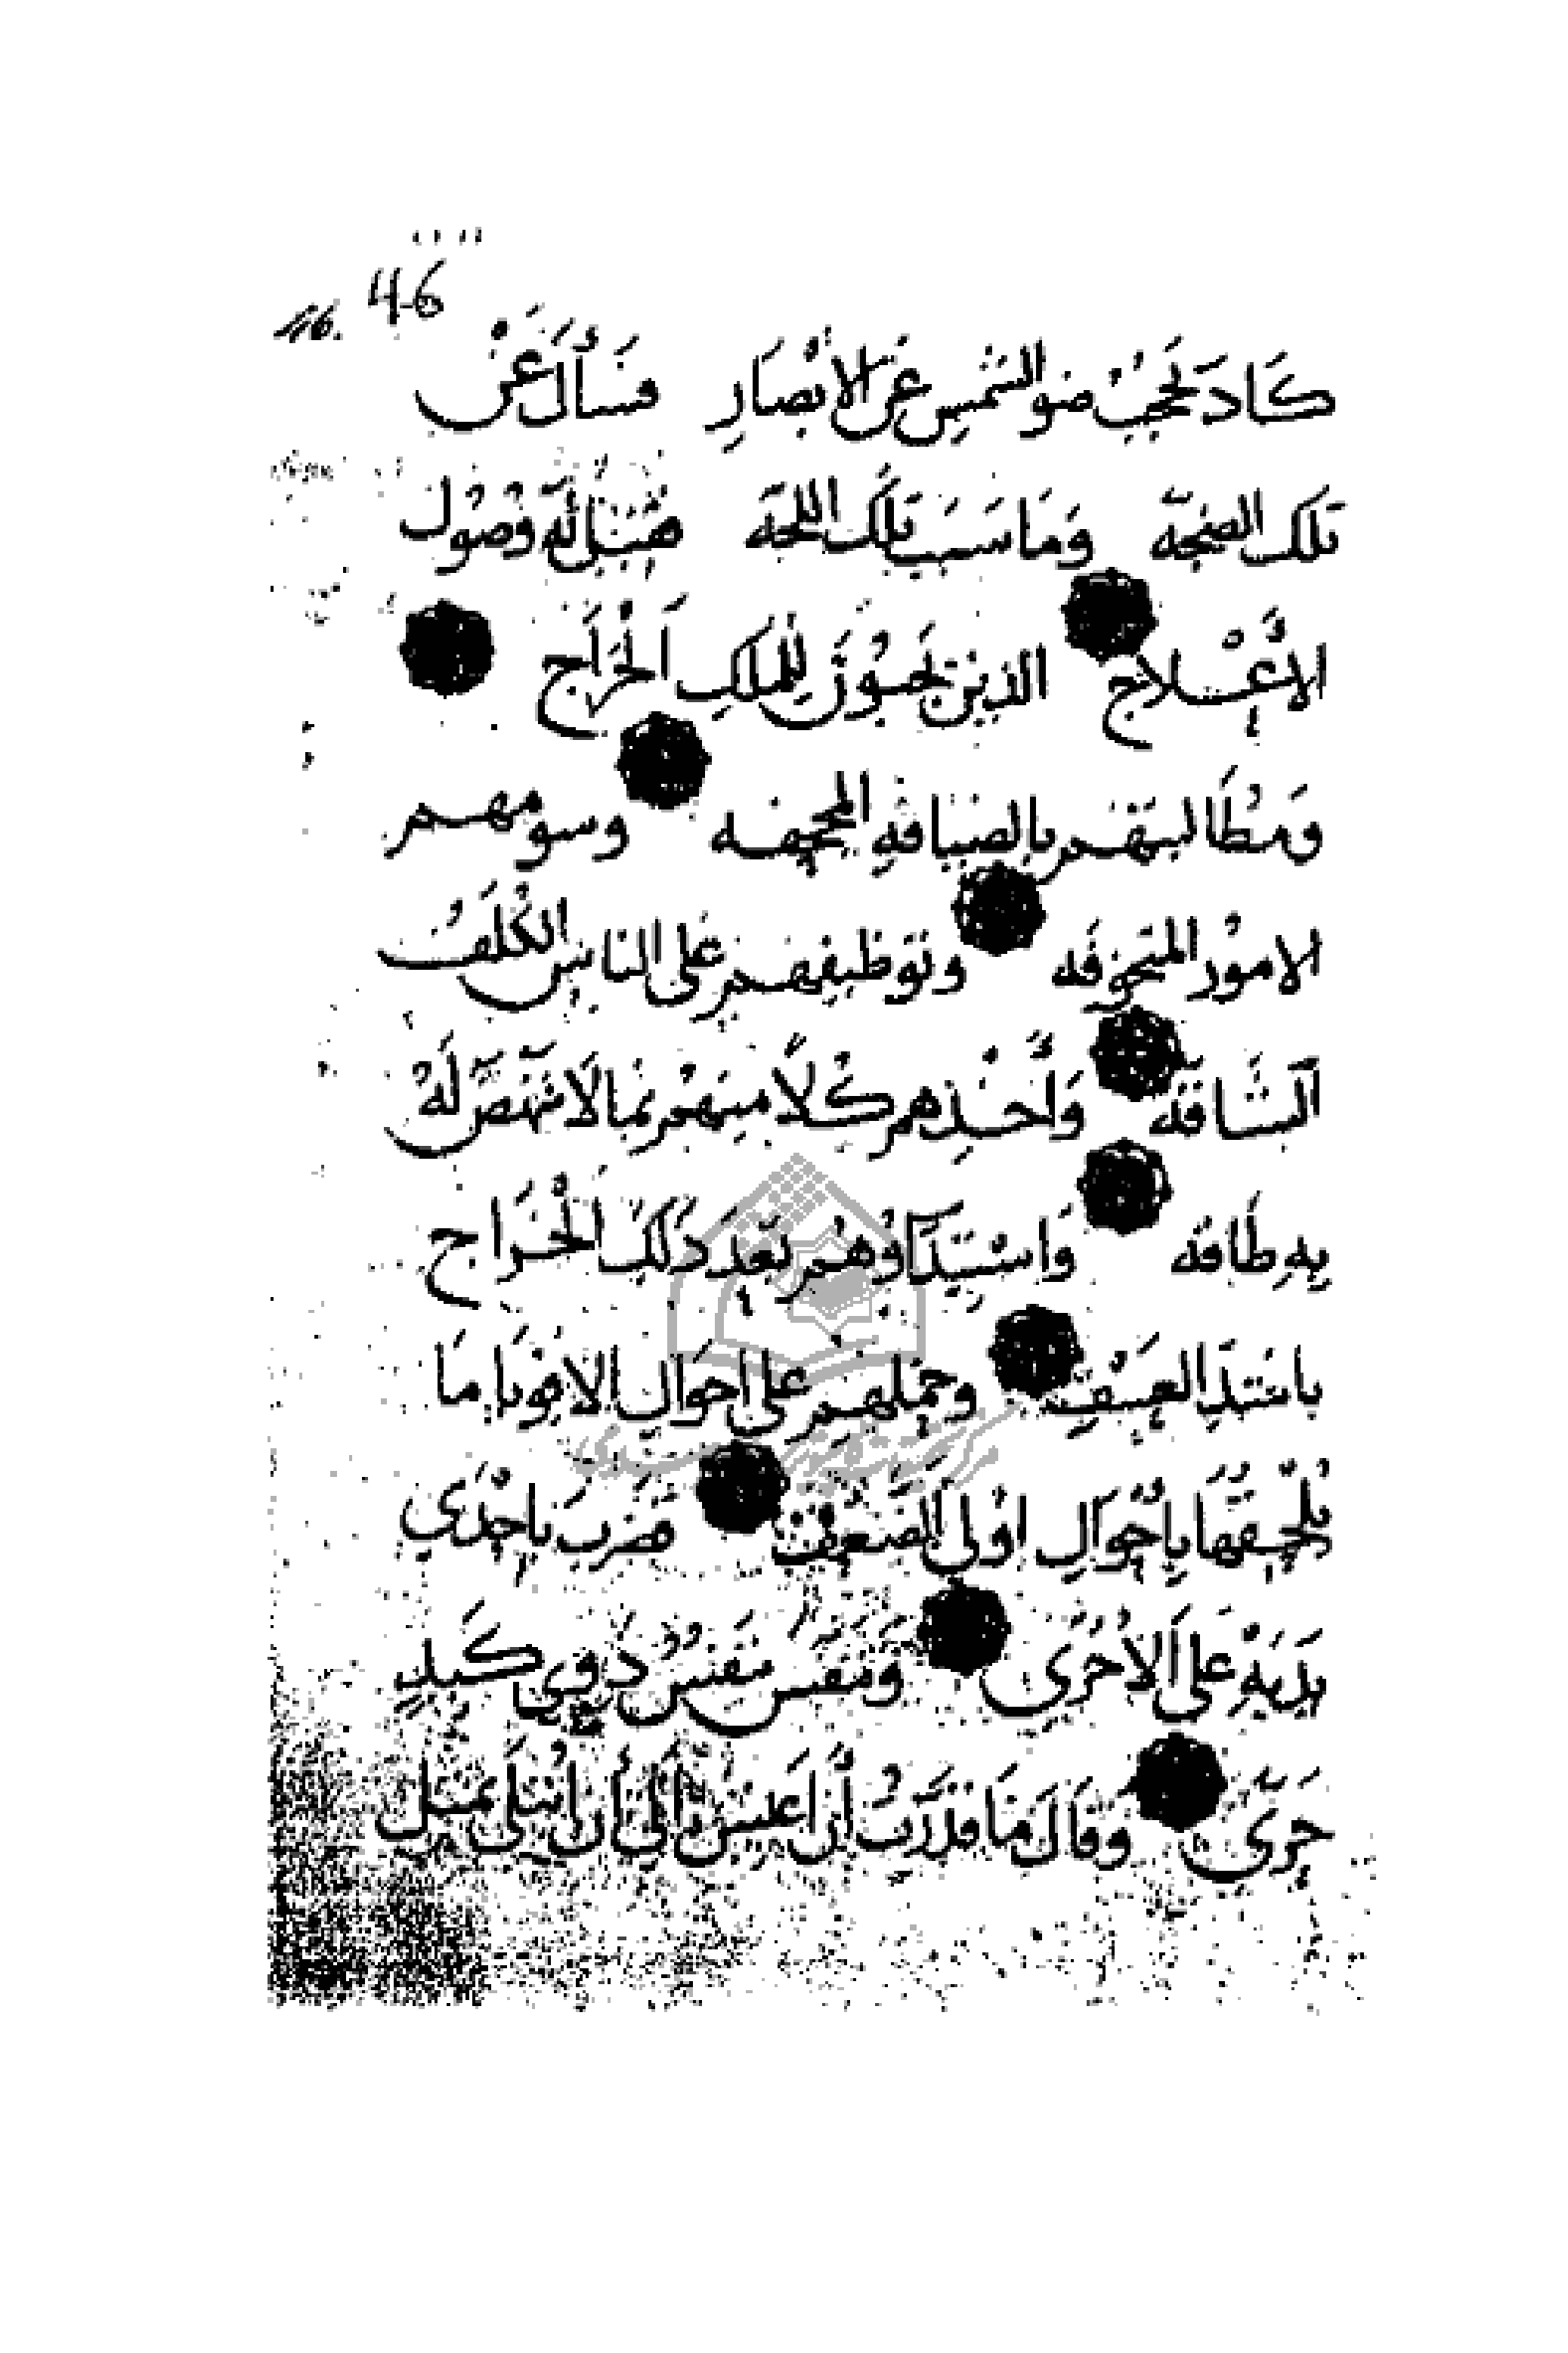 46
46.
كَادَ يَحْجُبُ ضو الشمسِ عَنِ الابْصَارِ فَسَأَلَ عَنْ
تلك الضجّه وَمَا سَبَب تلك اللجّه فقيل لَه وُصُول
الاعْلاج الذين يجبوُن للملكِ الْخَرَاج
وَمُطَالبتهم بالضيافهِ المجحفه وسومهم
الامور المتحوفه وتوظيفهم على الناس الكُلَف
الشاقّه وَأَخذهم كلاً منهم بما لا تنهض لَهُ
بهِ طَاقه وَاسْتيدَاوُهُم بَعدَ ذلك الْخَرَاج
باشدّ العنف وحملهم على احوال الاقويا مَا
يُلْحقهَا بِأحْوَالِ اوْلي الضعف فضرب باحْدَي
يَدَيهِ على الاُخْرَي وتنفس تنفسُ ذوي كَبدٍ
حَرّي وقال مَا قدّرتُ أن اعيش الى أن اُبْتلي بمثل